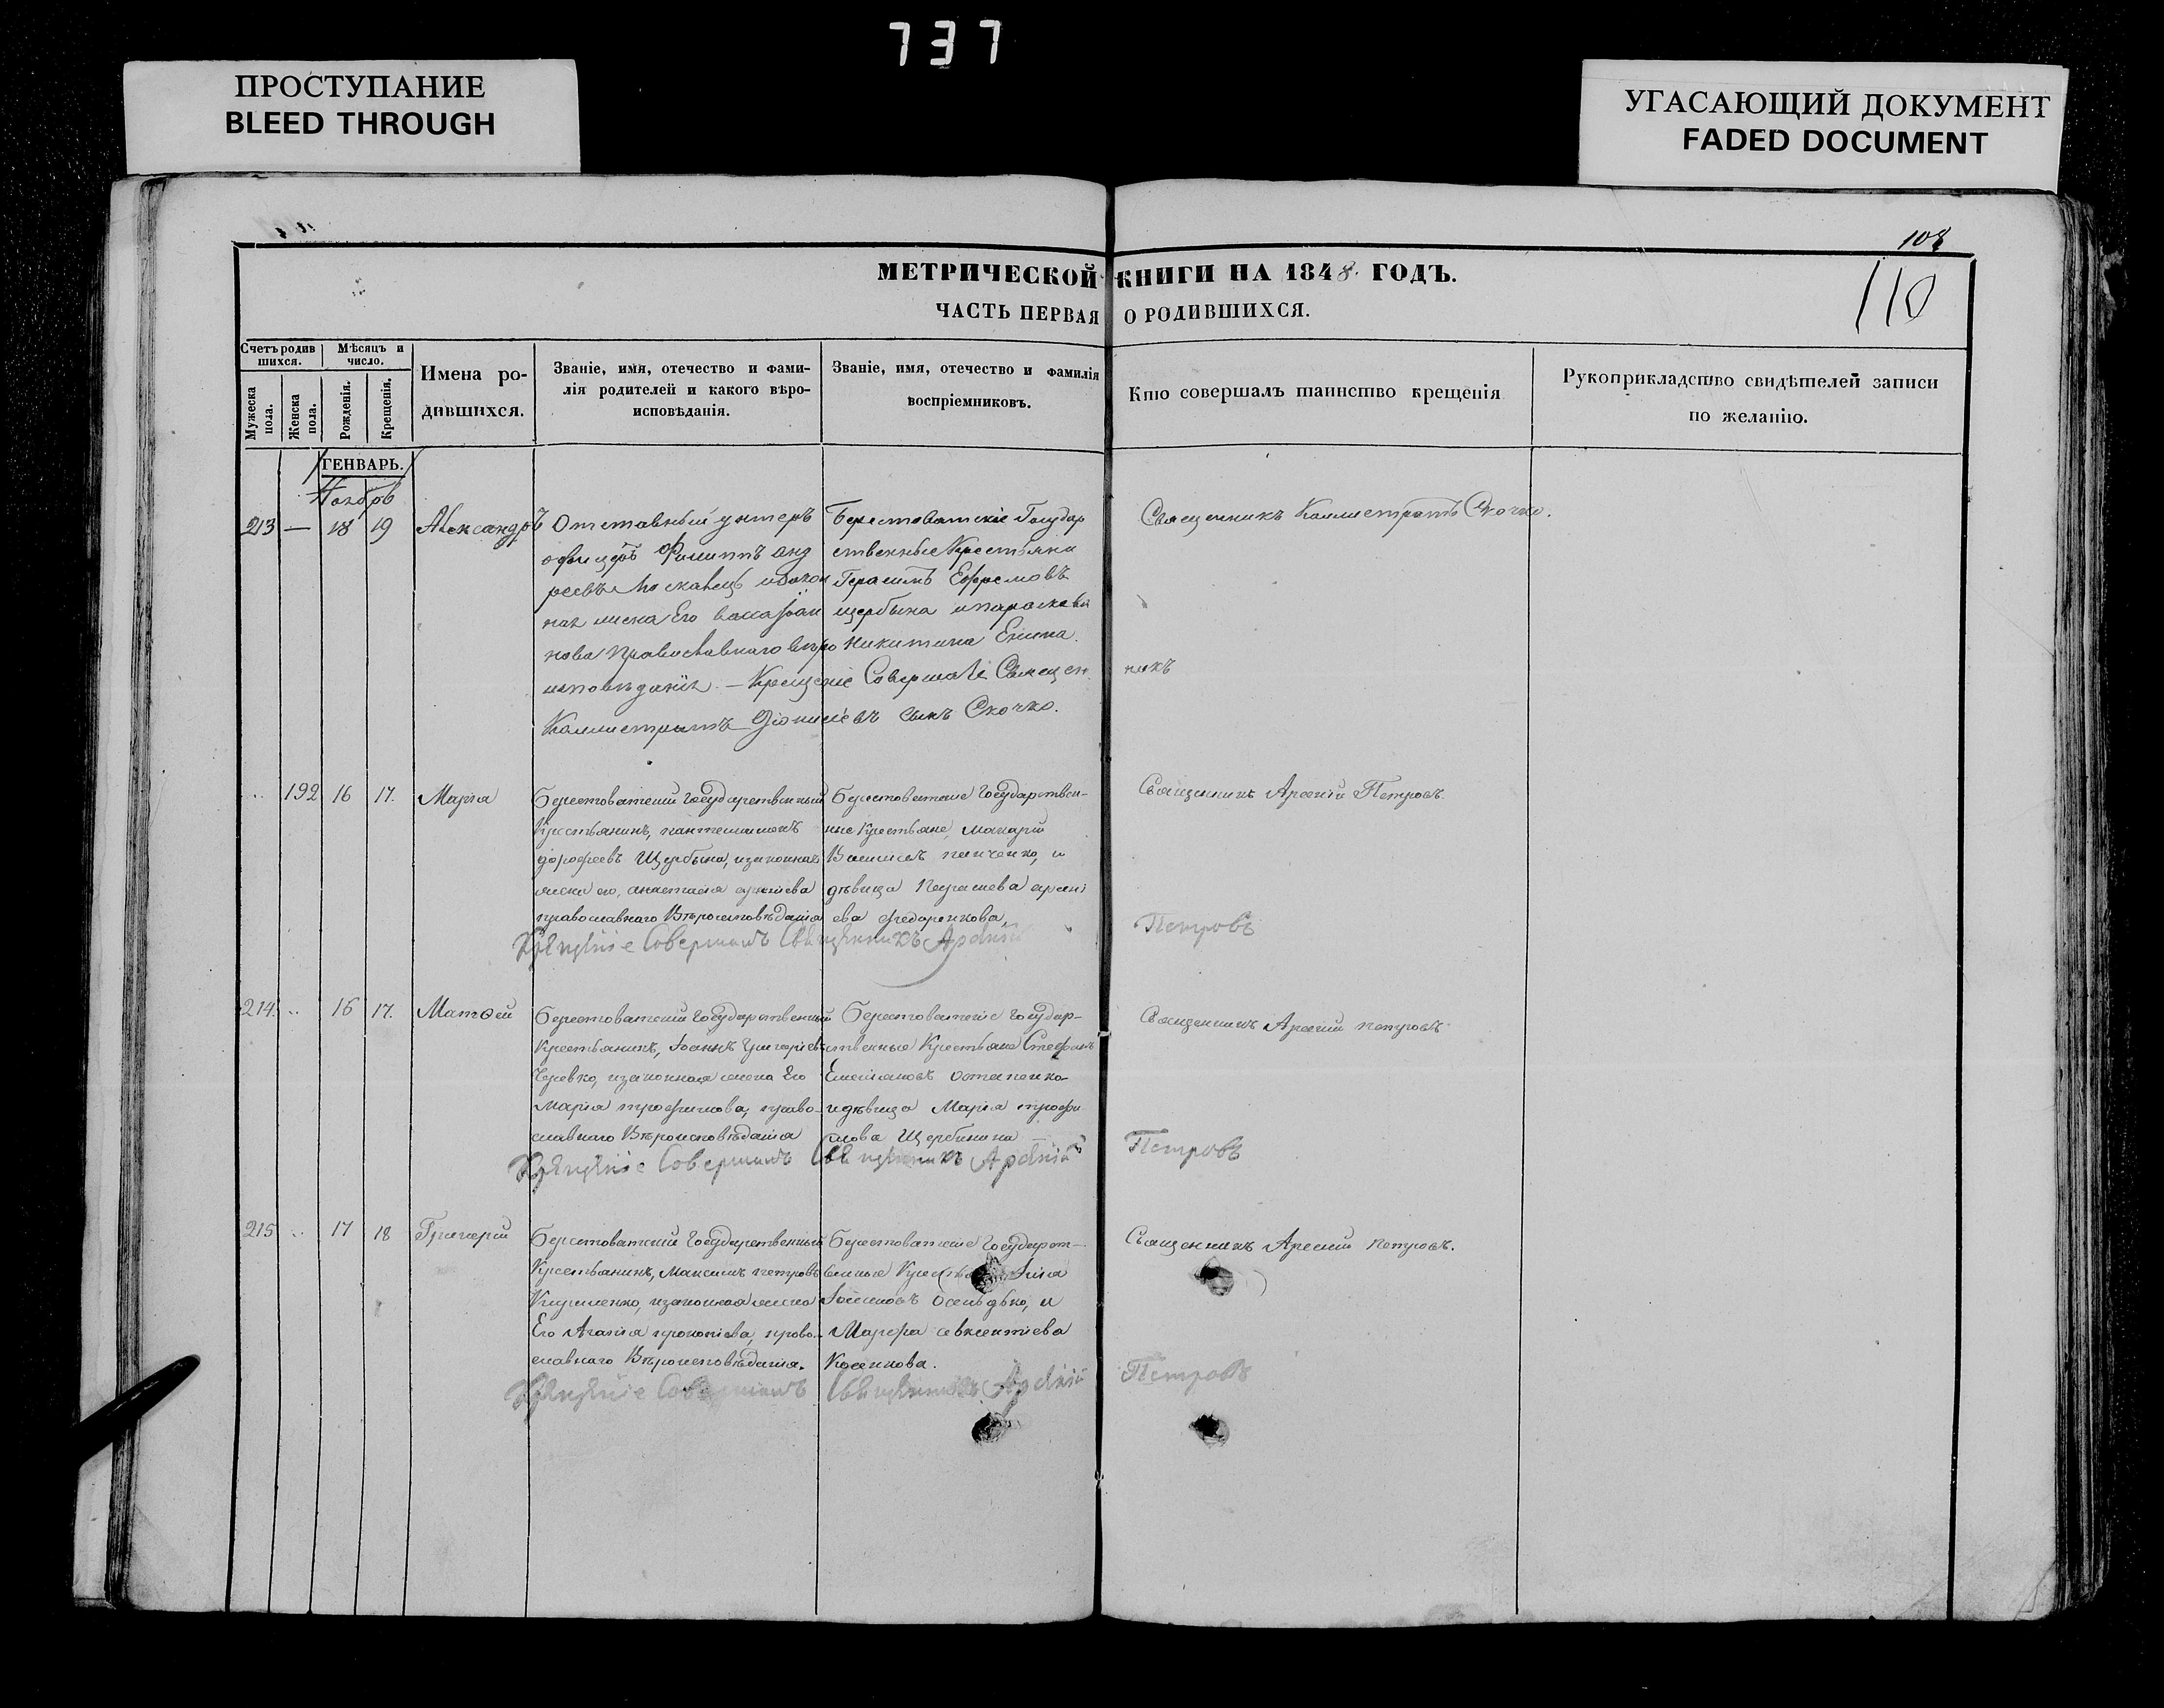 737
ПРОСТУПАНИЕ
BLEED THROUGH
УГАСАЮЩИЙ ДОКУМЕНТ
FADED DOCUMENT
108
110
МЕТРИЧЕСКОЙ КНИГИ НА 1848. ГОДЪ.
ЧАСТЬ ПЕРВАЯ О РОДИВШИХСЯ.
Счетъ родив
шихся.
Мужеска
пола.
Женска
пола.
Мѣсяцъ и
число.
Рожденія.
Крещенія.
Имена ро-
дившихся.
Званіе, имя, отечество и фами-
лія родителей и какого вѣро-
исповѣданія.
Званіе, имя, отечество и фамилія
воспріемниковъ.
Кто совершалъ таинство крещенія
Рукоприкладство свидѣтелей записи
по желанію.
ГЕНВАРЬ.
Ноябрь
213 — 18 19 Александръ
Отставный унтеръ
офицеръ Филиппъ анд
реевъ Москавецъ изакон
ная жена Его вассаІоан
нова Православнаго вѣро
исповѣданія. — Крещеніе Совершалъ Священ
никъ
Каллистратъ Діонисіевъ сынъ Скочко.
Берестоватскіе Государ
ственные Крестьяни
Герасимъ Ефремовъ
щербина ипараскева
Никитина
Священникъ Каллистратъ Скочко.
192 16 17. Марія
Берестоватскій Государственный
Крестьянинъ, пантелимонъ
дорофеевъ Щербина, изаконная
жена его, анастасія
православнаго Вѣроисповѣданія
Берестоватскіе Государствен-
ные Крестьяне, Макарій
панченко, и
дѣвица
ева федоренкова,
Крещеніе Совершалъ Священникъ Арсеній
Петровъ
Священникъ Арсеній Петровъ.
214. .. 16 17. Матѳей
Берестоватскій Государственный
Крестьянинъ, Іоаннъ Григоріевъ
Черевко, изаконная жена Его
Марія трофимова, право-
славнаго Вѣроисповѣданія
Берестоватскіе Государ-
ственные Крестьяне Стефанъ
Емельяновъ Остапенко
идѣвица Марія трофи
мова Щербинина
Крещеніе Совершалъ Священникъ Арсеній
Петровъ
Священникъ Арсеній петровъ.
215 .. 17 18 Григорій
Берестоватскій Государственный
Крестьянинъ, Максимъ петровъ
изаконная жена
Его Агапія прокопіева, право-
славнаго Вѣроисповѣданія.
Берестоватскіе Государст-
венные Илія
и
Марфа евксентіева
Косенкова.
Крещеніе Совершалъ Священникъ Арсеній
Петровъ
Священникъ Арсеній петровъ.